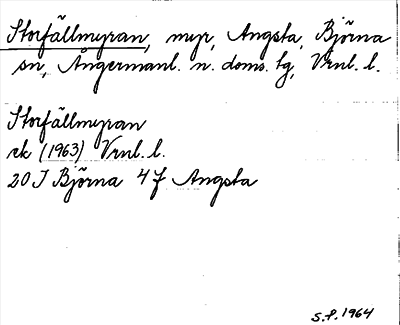 Storfällmyran, myr, Angsta, Björna
sn, Ångermanl. n. doms. tg, Vrnl. l.
Storfällmyran
rk (1963) Vrnl. l.
20 J Björna 4 f Angsta
S.P. 1964